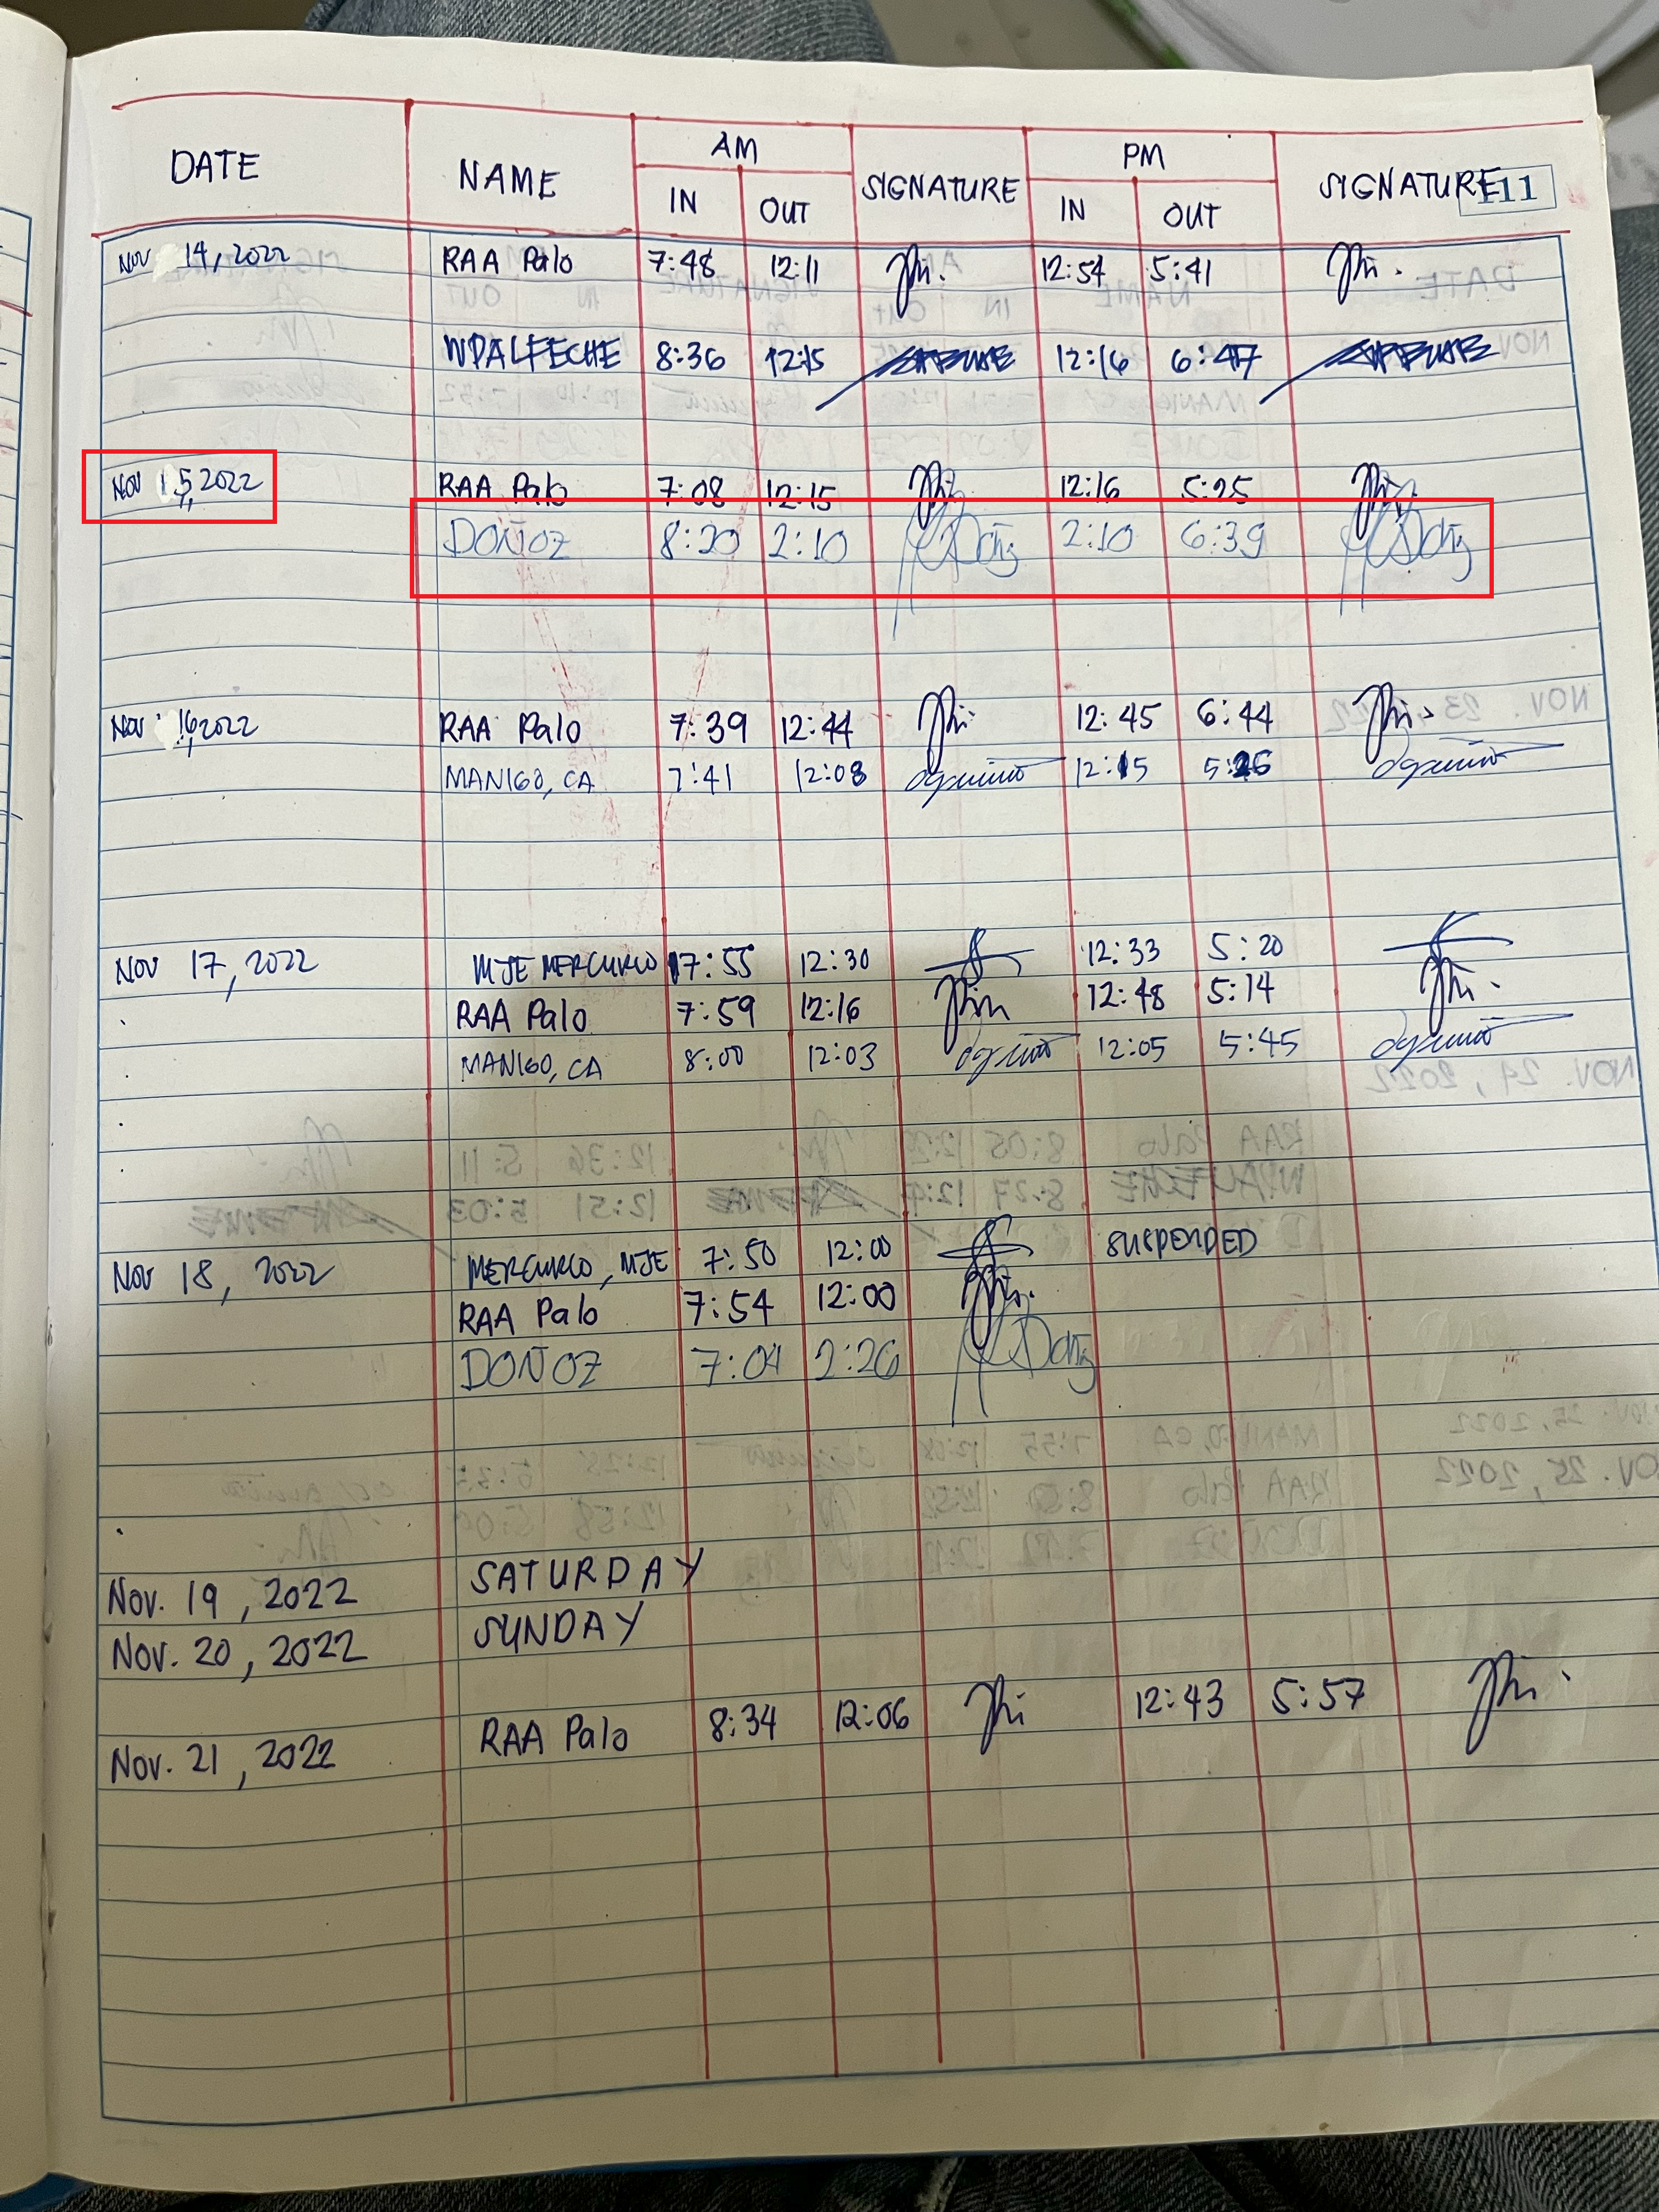 DATE NAME AM SIGNATURE PM SIGNATURE 111
IN OUT IN OUT
Nov 14, 2022 RAA Palo 7:48 12:11 12:54 5:41
WPALFECHE 8:36 12:15 12:16 6:47
Nov 15, 2022 RAA Palo 7:08 12:15 12:16 5:25
DOÑOZ 8:20 2:10 2:10 6:39
Nov 16 2022 RAA Palo 7:39 12:44 12:45 6:44
MANIGO, CA 7:41 12:08 12:15 5:26
Nov 17, 2022 MJE MERCURIO 7:55 12:30 12:33 5:20
RAA Palo 7:59 12:16 12:48 5:14
MANIGO, CA 8:00 12:03 12:05 5:45
Nov 18, 2022 MERCURIO, MJE 7:50 12:00 SUSPENDED
RAA Palo 7:54 12:00
DOÑOZ 7:04 2:26
Nov. 19, 2022 SATURDAY
Nov. 20, 2022 SUNDAY
Nov. 21, 2022 RAA Palo 8:34 12:06 12:43 5:57